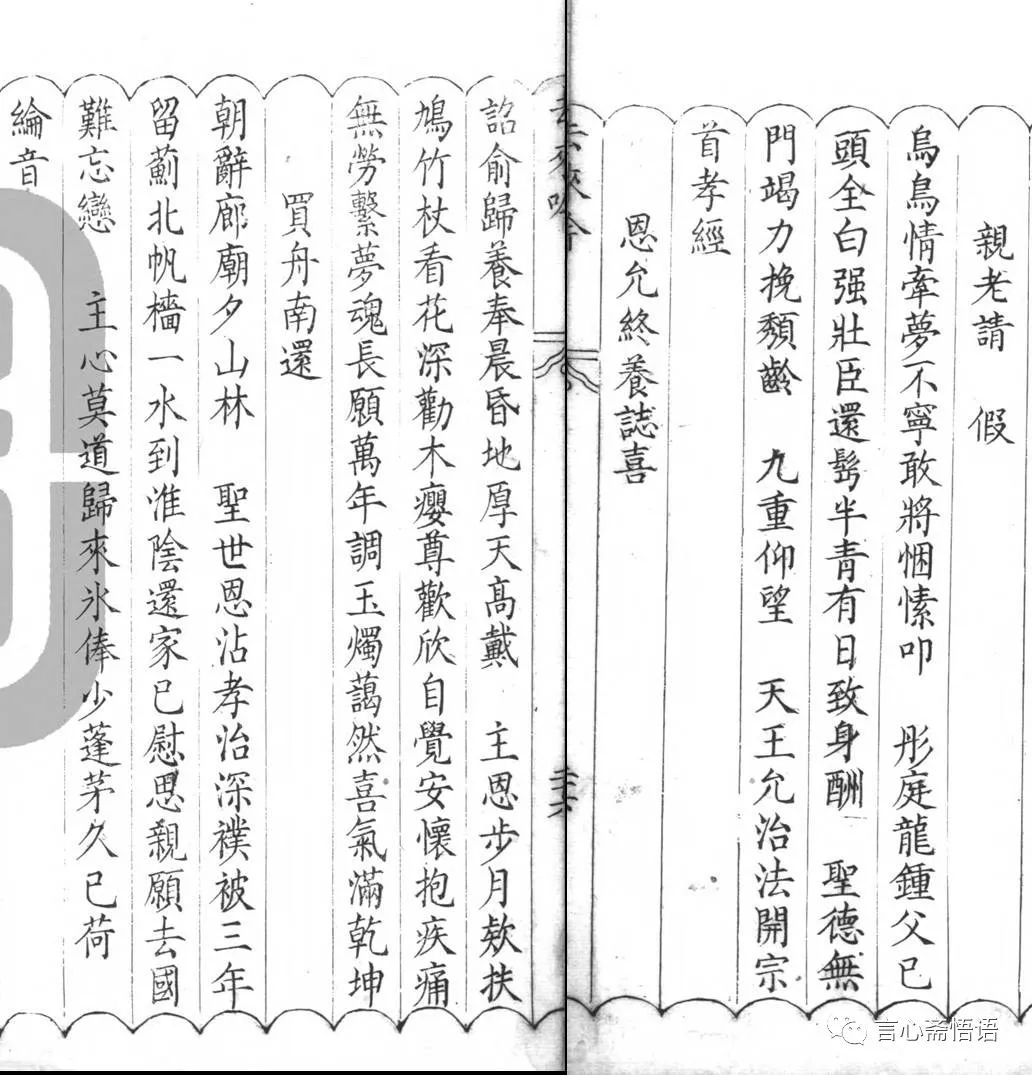 親老請 假
烏鳥情牽夢不寧敢將悃愫叩 彤庭龍鍾父已
頭全白强壯臣還髩半青有日致身酬 聖德無
門竭力挽頽齡 九重仰望 天王允治法開宗
首孝經
恩允終養誌喜
詔俞歸養奉晨昏地厚天高戴 主恩步月欸扶
鳩竹杖看花深勸木癭尊歡欣自覺安懷抱疾痛
無勞繫夢魂長願萬年調玉燭藹然喜氣滿乾坤
買舟南還
朝辭廊廟夕山林 聖世恩沾孝治深襆被三年
留薊北帆檣一水到淮陰還家已慰思親願去國
難忘戀 主心莫道歸來氷俸少蓬茅久已荷
綸音
言心斋悟语